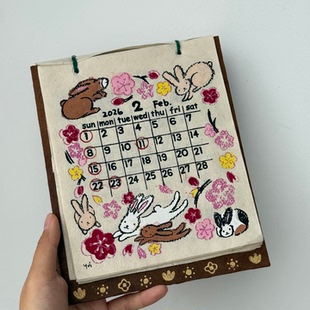 2026 2 Feb.
sun mon tue wed thu fri sat
1 2 3 4 5 6 7
8 9 10 11 12 13 14
15 16 17 18 19 20 21
22 23 24 25 26 27 28